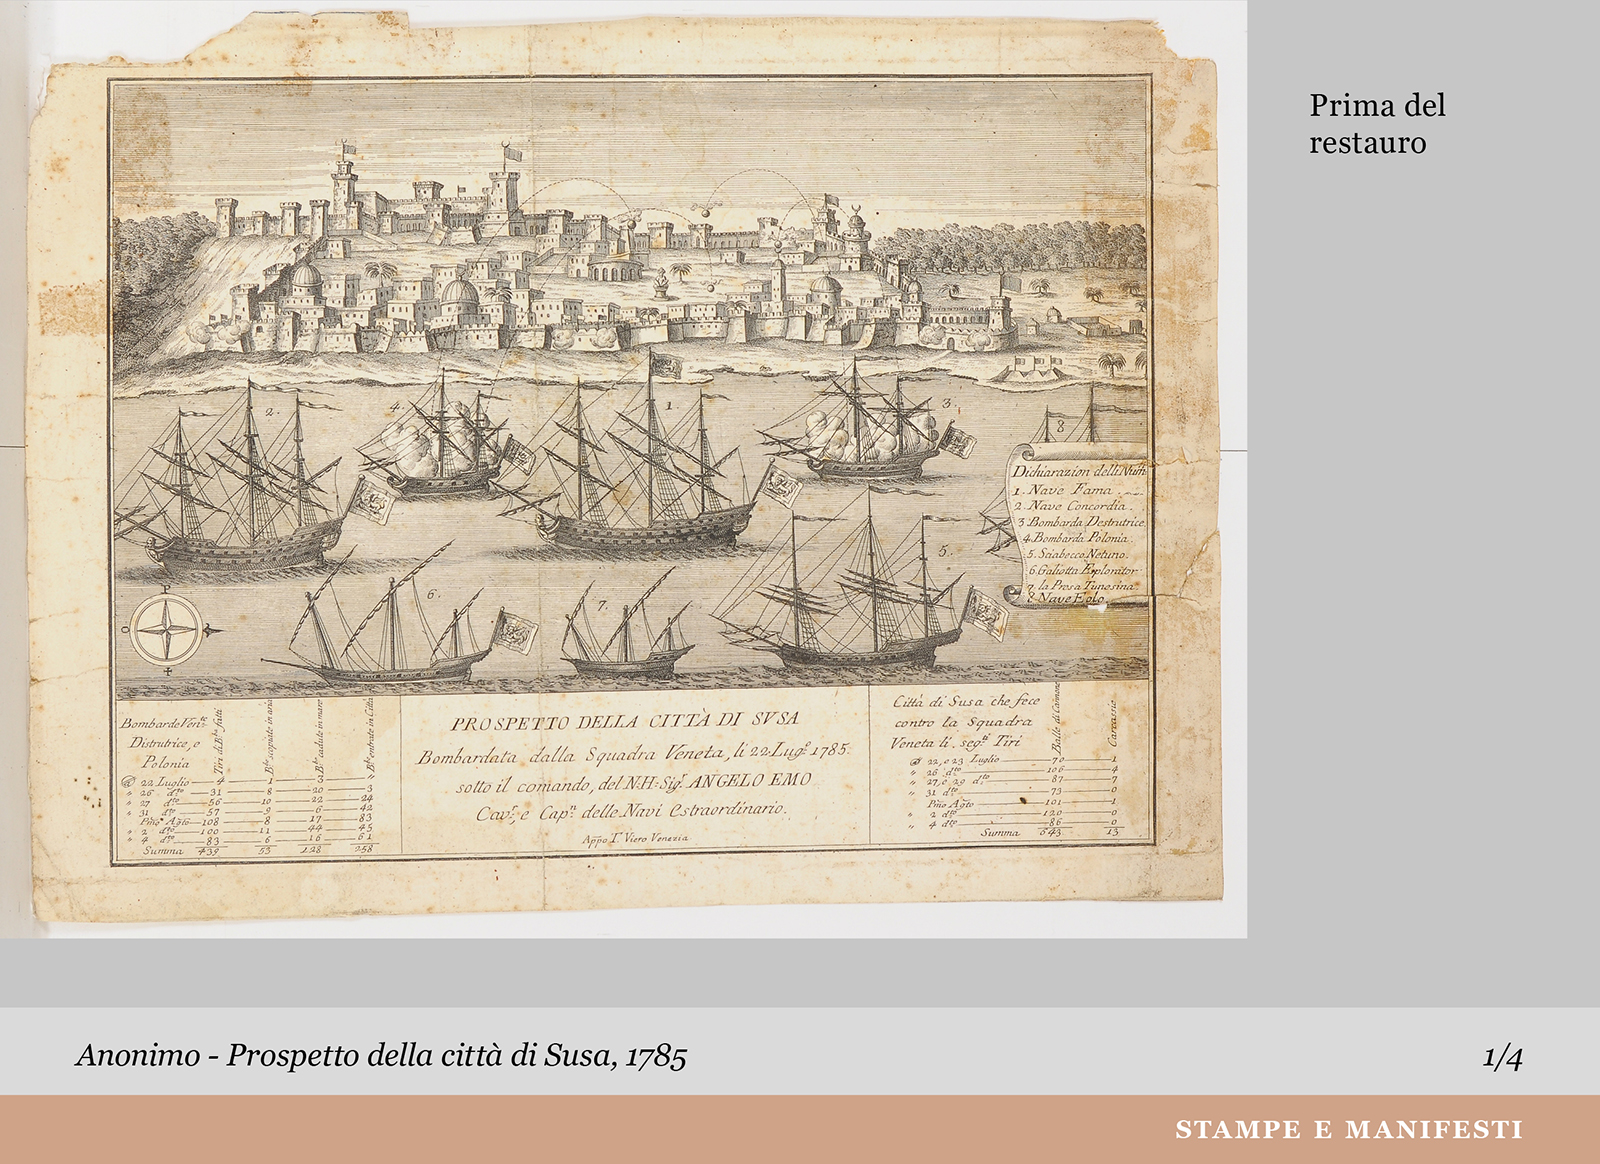 Prima del
restauro
2.
4.
1.
3.
8
Dichiarazion delli Num
1. Nave Fama.
2 Nave Concordia.
3 Bombarda Destrutrice
4. Bombarda Polonia.
5. Sciabecco Netuno.
6. Galiotta Esplorator
7. la Presa Tunesina
8 Nave Eolo.
5.
6.
7.
Bombarde Venᵗᵉ
Distrutrice, e
Polonia
Tiri di Bᵇᵉ fatti
Bᵇᵉ scopiate in aria
Bᵇᵉ cadute in mare
Bᵇᵉ entrate in Città
22 Luglio 4 1 3
26 dᵗᵒ 31 8 20 3
27 dᵗᵒ 56 10 22 24
31 dᵗᵒ 57 9 6 42
Pmo Agto 108 8 17 83
2 dᵗᵒ 100 11 44 45
4 dᵗᵒ 83 6 16 61
Summa 439 53 128 258
PROSPETTO DELLA CITTÀ DI SVSA
Bombardata dalla Squadra Veneta, li 22 Lugº 1785.
sotto il comando, del N:H: Sigʳ ANGELO EMO
Cavʳ, e Capⁿ delle Navi Estraordinario.
Appo T. Viero Venezia
Città di Susa che fece
contro la Squadra
Veneta li segᵗⁱ Tiri
Balle di Canone
Carcasse
22, e 23 Luglio 70 1
26 dᵗᵒ 106 4
27, e 29 dᵗᵒ 87 7
31 dᵗᵒ 73 0
Pmo Agto 101 1
2 dᵗᵒ 120 0
4 dᵗᵒ 86 0
Summa 643 13
Anonimo - Prospetto della città di Susa, 1785
1/4
STAMPE E MANIFESTI